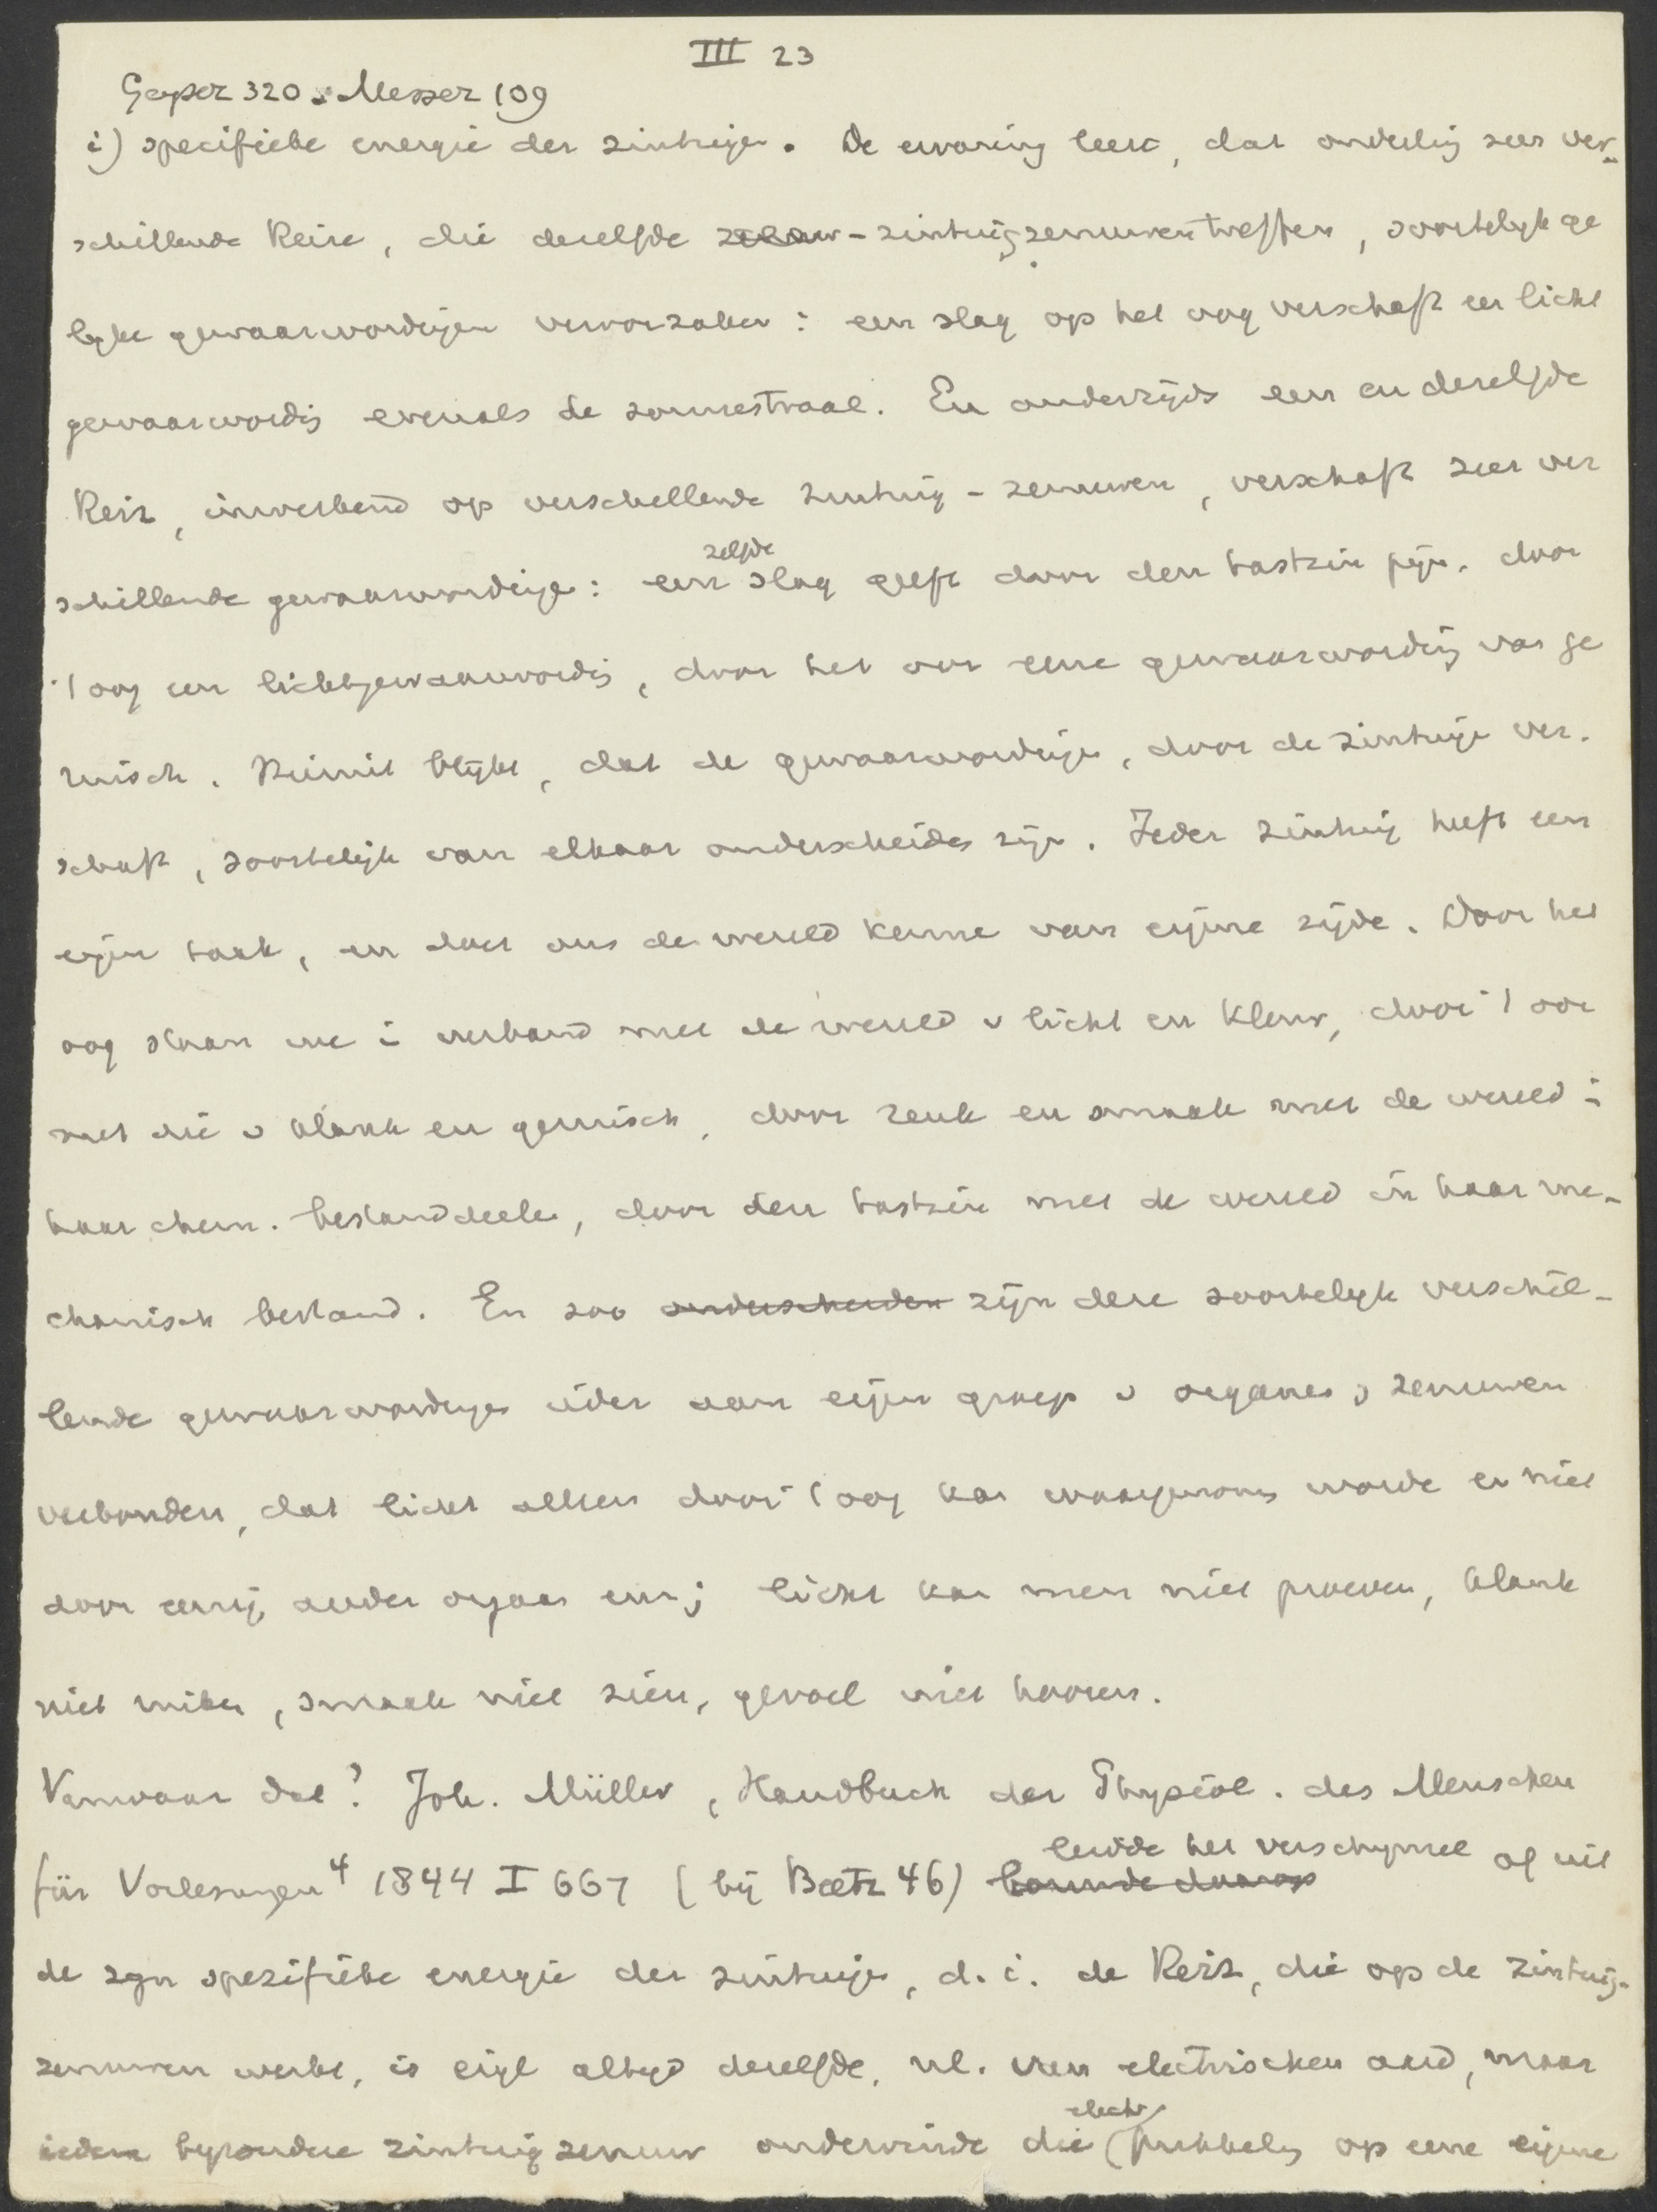 III 23
Geyser 320. Messer 109
i) specifieke energie der zintuigen. De ervaring leert, dat onderling zeer ver-
schillende Reize, die dezelfde zenuw-zintuigzenuwen treffen, soortelyk ge
lyke gewaarwordingen veroorzaken: een slag op het oog verschaft een licht
gewaarwordig evenals de zonnestraal. En anderzijds een en dezelfde
Reiz, inwerkend op verschillende zintuig-zenuwen, verschaft zeer ver
schillende gewaarwordigen: een zelfde slag geeft door den tastzin pijn, door
't oog een lichtgewaarwordig, door het oor eene gewaarwordig van ge
ruisch. Hieruit blijkt, dat de gewaarwordigen, door de zintuige ver-
schaft, soortelijk van elkaar onderscheiden zijn. Ieder zintuig heeft een
eigen taak, en doet ons de wereld kenne van eigene zijde. Door het
oog staan we i verband met de wereld v licht en kleur, door 't oor
met die v klank en geruisch, door reuk en smaak met de wereld i
haar chem. bestanddeelen, door den tastzin met de wereld in haar me-
chanisch bestand. En zoo onderscheiden zijn deze soortelyk verschil-
lende gewaarwordinges ieder aan eigen groep v organen v zenuwen
verbonden, dat licht alleen door 't oog kan waargenomen worde en niet
door eenig ander orgaan enz; licht kan men niet proeven, klank
niet ruiken, smaak niet zien, gevoel niet hooren.
Vanwaar dat? Joh. Müller, Handbuch der Physiol. des Menschen
für Vorlesungen⁴ 1844 I 667 (bij Baetz 46) bouwde daarop leidde het verschynsel af uit
de zgn spezifieke energie der zintuige, d.i. de Reiz, die op de zintuig-
zenuwen werkt, is eigl altyd dezelfde, nl. van electrischen aard, maar
iedere byzondere zintuigzenuw ondervinde die electr. prikkeling op eene eigene